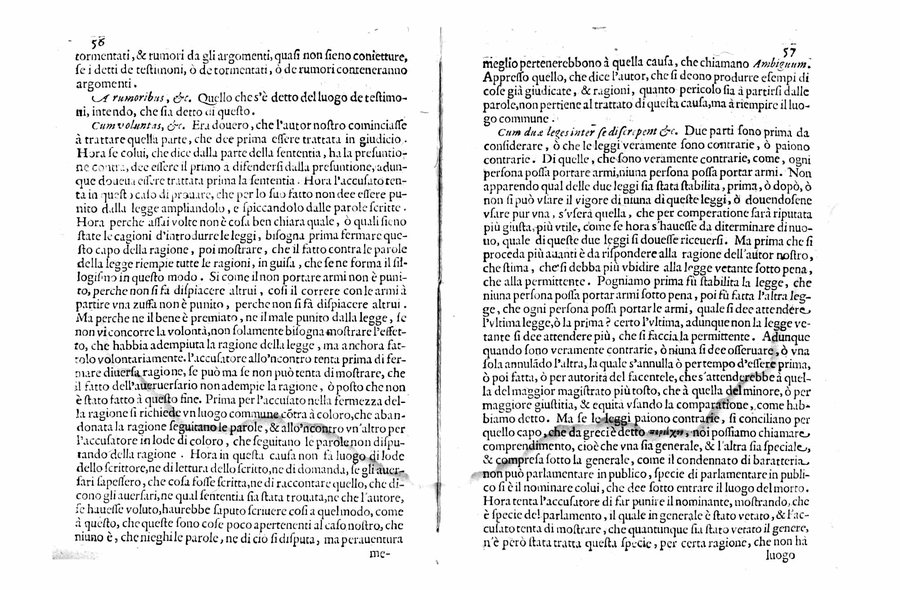 56
tormentati, & rumori da gli argomenti, quasi non sieno conietture,
se i detti de testimoni, ò de tormentati, ò de rumori conteneranno
argomenti.
A rumoribus, &c. Quello che s'è detto del luogo de testimo-
ni, intendo, che sia detto di questo.
Cum voluntas, &c. Era douero, che l'autor nostro cominciasse
à trattare quella parte, che dee prima essere trattata in giudicio.
Hora se colui, che dice dalla parte della sententia, ha la presuntio-
ne contra, dee essere il primo a difendersi dalla presuntione, adun-
que doueua essere trattata prima la sententia. Hora l'accusato ten-
ta in questo caso di prouare, che per lo suo fatto non dee essere pu-
nito dalla legge ampliandolo, e spiccandolo dalle parole scritte.
Hora perche assai volte non è cosa ben chiara quale, ò quali sieno
state le cagioni d'introdurre le leggi, bisogna prima fermare que-
sto capo della ragione, poi mostrare, che il fatto contra le parole
della legge riempie tutte le ragioni, in guisa, che se ne forma il sil-
logismo in questo modo. Si come il non portare armi non è puni-
to, perche non si fa dispiacere altrui, cosi il correre con le armi à
partire vna zuffa non è punito, perche non si fa dispiacere altrui.
Ma perche ne il bene è premiato, ne il male punito dalla legge, se
non vi concorre la volontà, non solamente bisogna mostrare l'effet-
to, che habbia adempiuta la ragione della legge, ma anchora fat-
tolo volontariamente. l'accusatore allo'ncontro tenta prima di fer-
mare diuersa ragione, se può ma se non può tenta di mostrare, che
il fatto dell'aueruersario non adempie la ragione, ò posto che non
è stato fatto à questo fine. Prima per l'accusato nella fermezza del-
la ragione si richiede vn luogo commune cōtra à coloro, che aban-
donata la ragione seguitano le parole, & allo'ncontro vn'altro per
l'accusatore in lode di coloro, che seguitano le parole non dispu-
tando della ragione. Hora in questa causa non fa luogo di lode
dello scrittore, ne di lettura dello scritto, ne di domanda, se gli auer-
sari sapessero, che cosa fosse scritta, ne di raccontare quello, che di-
cono gli auersari, ne qual sententia sia stata trouata, ne che l'autore,
se hauesse voluto, haurebbe saputo scriuere cosi a quel modo, come
à questo, che queste sono cose poco apertenenti al caso nostro, che
niuno è, che nieghi le parole, ne di cio si disputa, ma perauentura
me-
57
meglio pertenerebbono à quella causa, che chiamano Ambiguum.
Appresso quello, che dice l'autor, che si deono produrre esempi di
cose già giudicate, & ragioni, quanto pericolo sia à partirsi dalle
parole, non pertiene al trattato di questa causa, ma à riempire il luo-
go commune.
Cum duæ leges inter se discrepent &c. Due parti sono prima da
considerare, ò che le leggi veramente sono contrarie, ò paiono
contrarie. Di quelle, che sono veramente contrarie, come, ogni
persona possa portare armi, niuna persona possa portar armi. Non
apparendo qual delle due leggi sia stata stabilita, prima, ò dopò, ò
non si può vsare il vigore di niuna di queste leggi, ò douendosene
vsare pur vna, s'vserà quella, che per comperatione sarà riputata
più giusta, più vtile, come se hora s'hauesse da diterminare di nuo-
uo, quale di queste due leggi si douesse riceuersi. Ma prima che si
proceda più auanti è da rispondere alla ragione dell'autor nostro,
che stima, che si debba più vbidire alla legge vetante sotto pena,
che alla permittente. Pogniamo prima fù stabilita la legge, che
niuna persona possa portar armi sotto pena, poi fù fatta l'altra leg-
ge, che ogni persona possa portarle armi, quale si dee attendere
l'vltima legge, ò la prima? certo l'vltima, adunque non la legge ve-
tante si dee attendere più, che si faccia la permittente. Adunque
quando sono veramente contrarie, ò niuna si dee osseruare, ò vna
sola annulādo l'altra, la quale s'annulla ò per tempo d'essere prima,
ò poi fatta, ò per autorita del facentele, che s'attenderebbe à quel-
la del maggior magistrato più tosto, che à quella del minore, ò per
maggiore giustitia, & equita vsando la comparatione, come hab-
biamo detto. Ma se le leggi paiono contrarie, si conciliano per
quello capo, che da greci è detto noi possiamo chiamare
comprendimento, cioè che vna sia generale, & l'altra sia speciale,
& compresa sotto la generale, come il condennato di baratteria
non può parlamentare in publico, specie di parlamentare in publi-
co si è il nominare colui, che dee sotto entrare il luogo del morto.
Hora tenta l'accusatore di far punire il nominante, mostrando, che
è specie del parlamento, il quale in generale è stato vetato, & l'ac-
cusato tenta di mostrare, che quantunque sia stato vetato il genere,
n'è però stata tratta questa specie, per certa ragione, che non hà
luogo